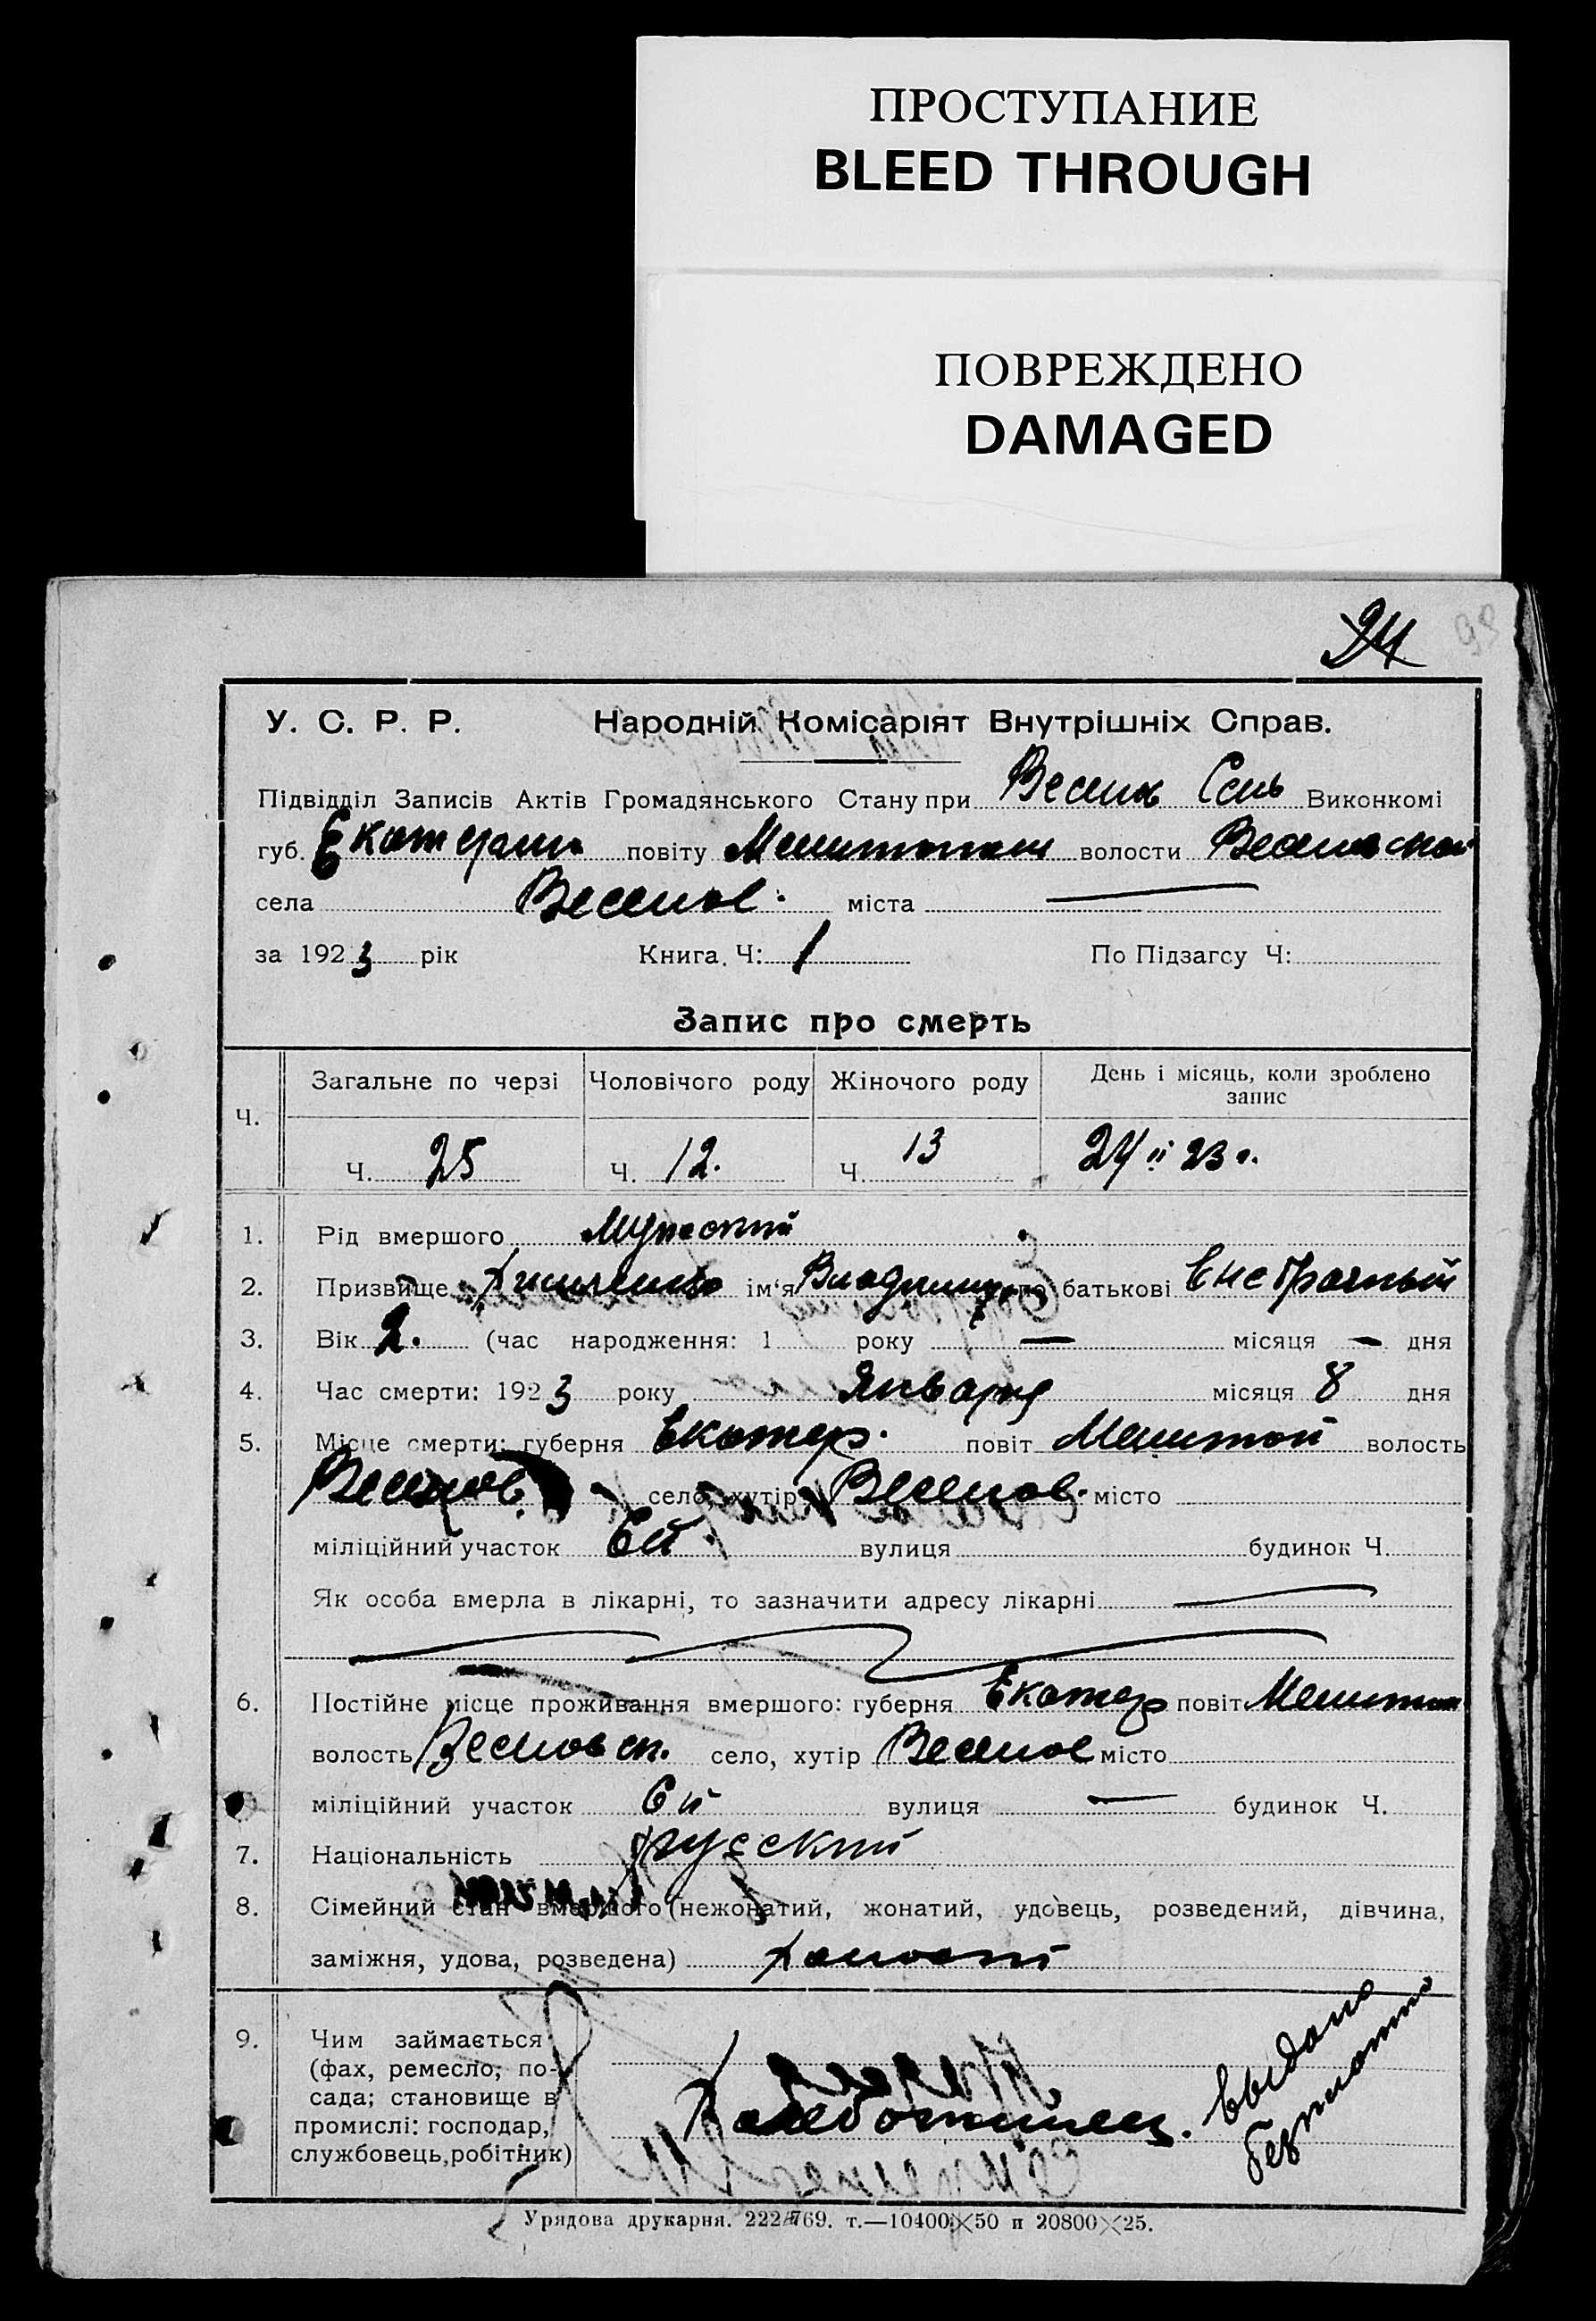 ПРОСТУПАНИЕ
BLEED THROUGH
ПОВРЕЖДЕНО
DAMAGED
24
У. С. Р. Р. Народній Комісаріят Внутрішніх Справ.
Підвідділ Записів Актів Громадянського Стану при Весел Виконкомі
губ. Екатерин повіту Мелитопол волости Веселовской
села Веселое міста —
за 1923 рік Книга Ч: 1 По Підзагсу Ч:
Запис про смерть
Ч. Загальне по черзі Чоловічого роду Жіночого роду День і місяць, коли зроблено запис
Ч. 25 Ч. 12. Ч. 13 24 II 23 г.
1. Рід вмершого Мужеский
2. Призвище ім'я Владимир по батькові Внебрачный
3. Вік 2. (час народження: 1 року — місяця — дня
4. Час смерти: 1923 року Января місяця 8 дня
5. Місце смерти: губерня Екатер. повіт Мелитоп волость
Веселов. село, хутір Веселов. місто
міліційний участок 6й. вулиця будинок Ч.
Як особа вмерла в лікарні, то зазначити адресу лікарні —
6. Постійне місце проживання вмершого: губерня Екатер повіт Мелитоп
волость Веселовск. село, хутір Веселое місто
міліційний участок 6й вулиця — будинок Ч.
7. Національність русский
8. Сімейний стан вмершого (нежонатий, жонатий, удовець, розведений, дівчина,
заміжня, удова, розведена) холост
9. Чим займається
(фах, ремесло, по-
сада; становище в
промислі: господар,
службовець, робітник)
Хлебопашец.
выдано
безплатно
Урядова друкарня. 222/769. т.—10400×50 и 20800×25.